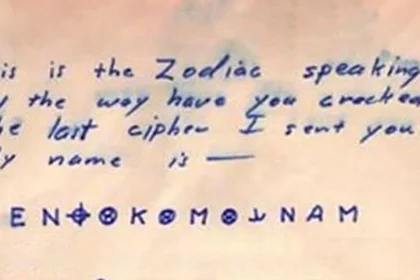 is is the Zodiac speaking
the way have you cracked
he last cipher I sent you
y name is —
E N ⌖ ⊗ K ⊗ M ⊗ ⅃ N A M